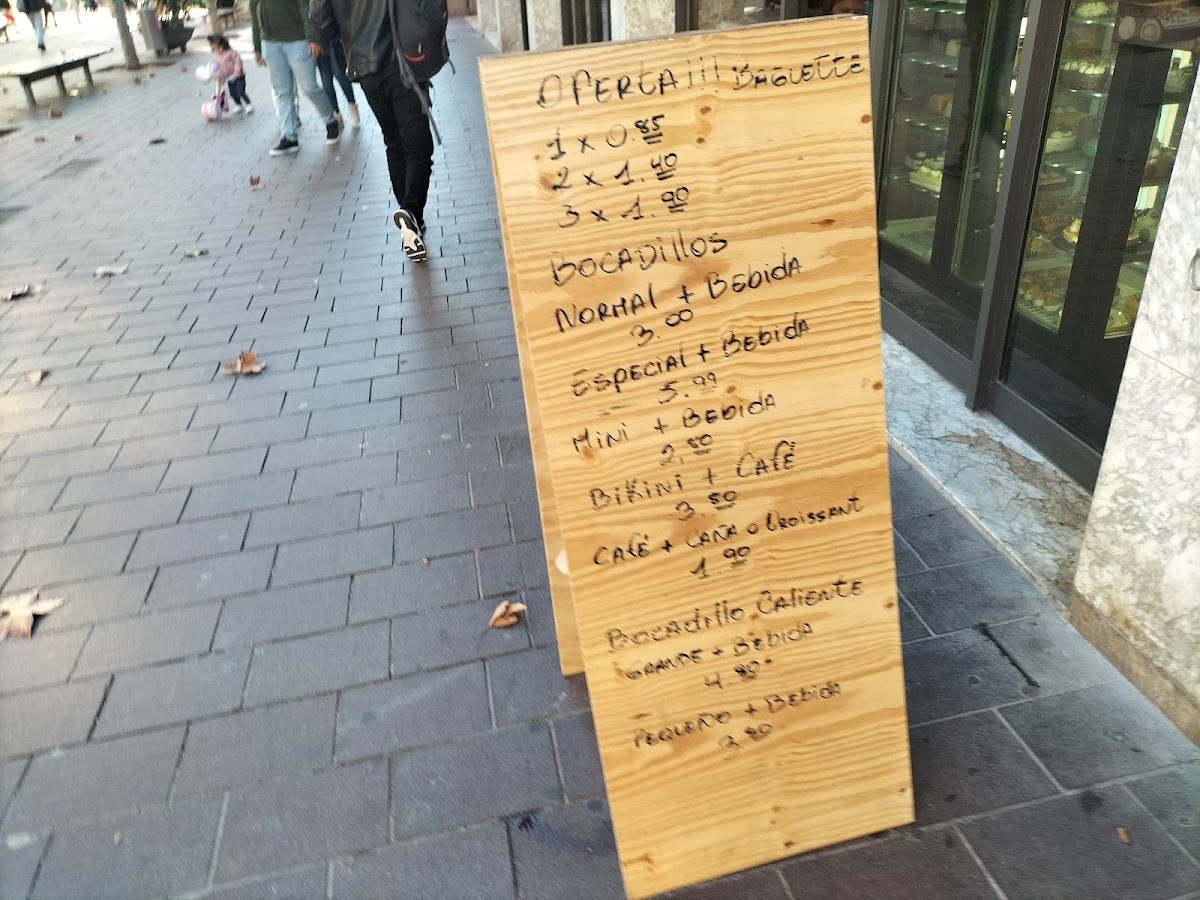 OFERTA!!! BAGUETTE
1 x 0.85
2 x 1.40
3 x 1.90
BOCADILLOS
NORMAL + BEBIDA
3.00
ESPECIAL + BEBIDA
5.99
MINI + BEBIDA
2.80
BIKINI + CAFÉ
3.50
CAFÉ + CAÑA O CROISSANT
1.90
BOCADILLO CALIENTE
GRANDE + BEBIDA
4.80
PEQUEÑO + BEBIDA
3.80